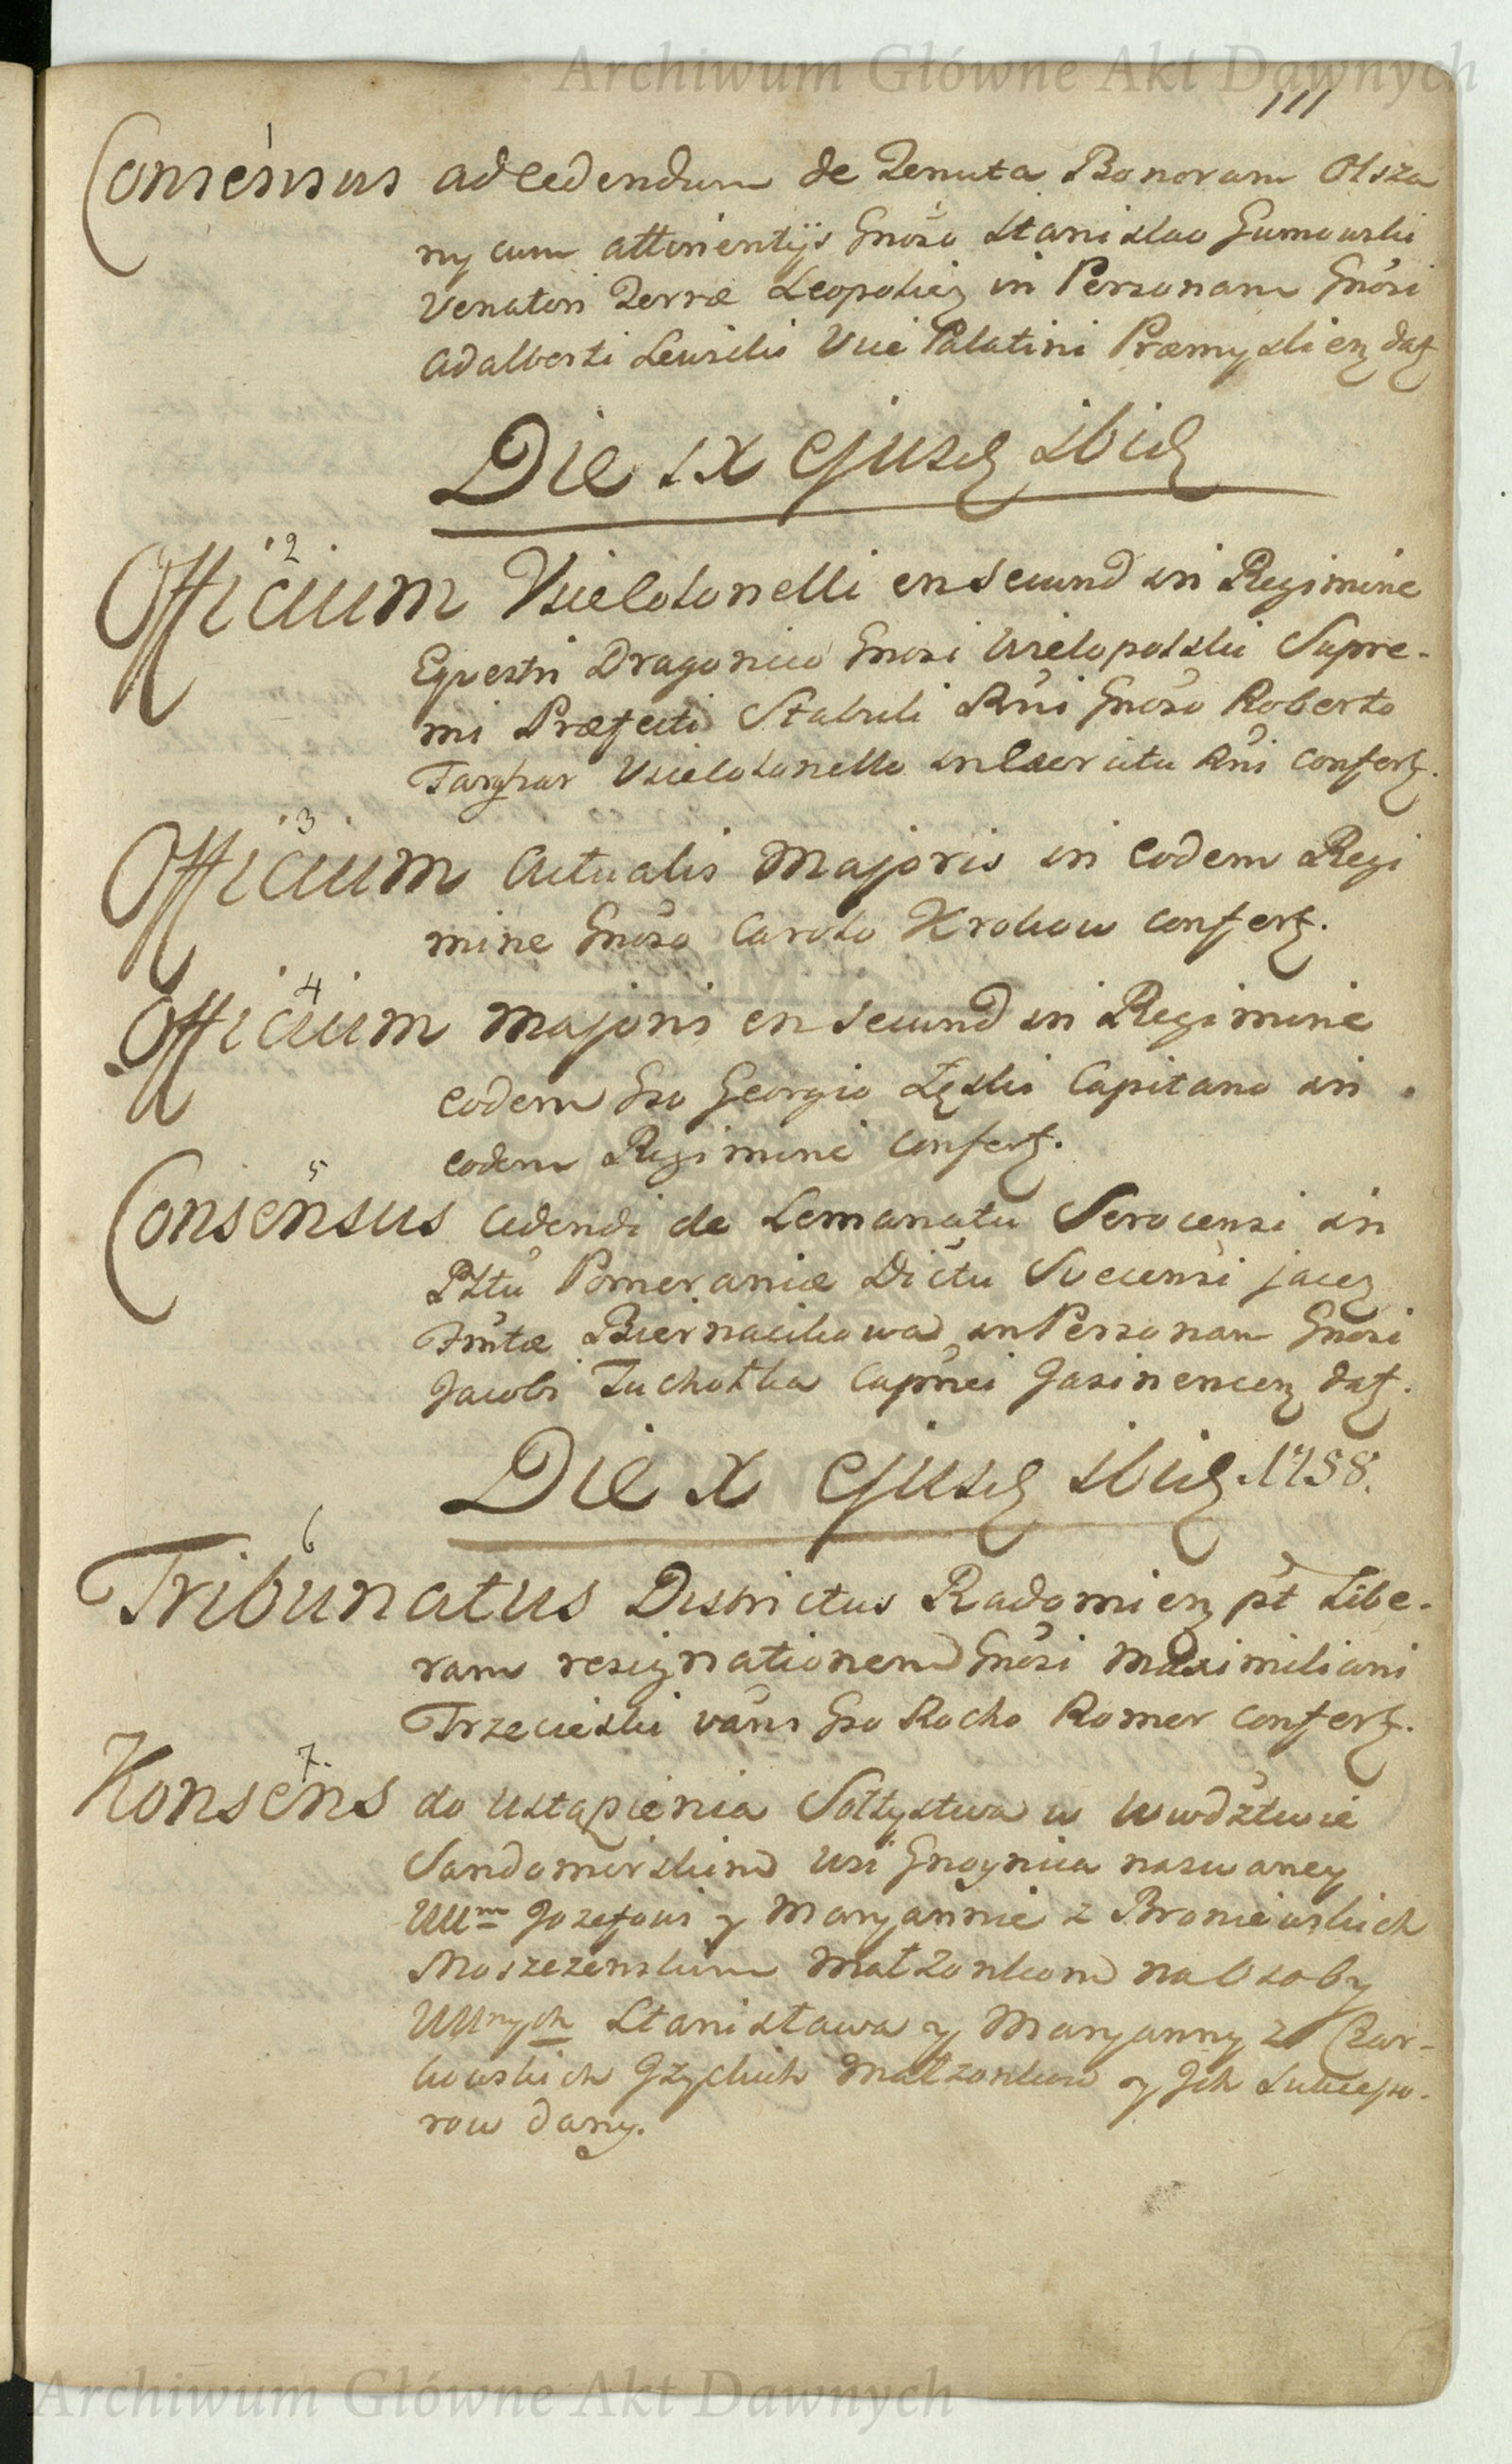 Archiwum Główne Akt Dawnych
111
1
Consensus ad cedendum de Tenuta Bonorum Olsza
ny cum attinentijs Gnoso Stanislao Gumowski
Venatori Terræ Leopolien in Personam Gnosi
Adalberti Lewicki Vice Palatini Præmyslien dat
Die IX ejusd ibid
2
Officium Vicelolonelli en Secund in Regimine
Equestri Dragonico Gnosi Wielopolski Supre-
mi Præfecti Stabuli Rni Gnoso Roberto
Farqhar Vicelolonello in Exercitu Rni confert.
3
Officium Actualis Majoris in eodem Regi
mine Gnoso Carolo Krokow confert.
4
Officium Majoris en Secund in Regimine
eodem Gso Georgio Łęski Capitano in
eodem Regimine confert.
5
Consensus cedendi de Lemanatu Serocensi in
Pltu Pomeraniæ Dictu Svecensi jacen
Gnitæ Biernacikowa in Personam Gnosi
Jacobi Tuchołka Capnei Jasinencen dat.
Die X ejusd ibid. 1758.
6
Tribunatus Districtus Radomien pt Libe-
ram resignationem Gnosi Maximiliani
Trzecieski vans Gso Rocho Romer confert.
7.
Konsens do ustąpienia Sołtystwa w Wwdztwie
Sandomirskim Wsi Gnoynica nazwaney
UUm Jozefowi y Maryannie z Broniewskich
Moszczenskim Małżonkom na Osoby
UUnych Stanisława y Maryanny z Czar-
kowskich Gzyckich Małżonkow y Jch Sukcesso-
row dany.
Archiwum Główne Akt Dawnych